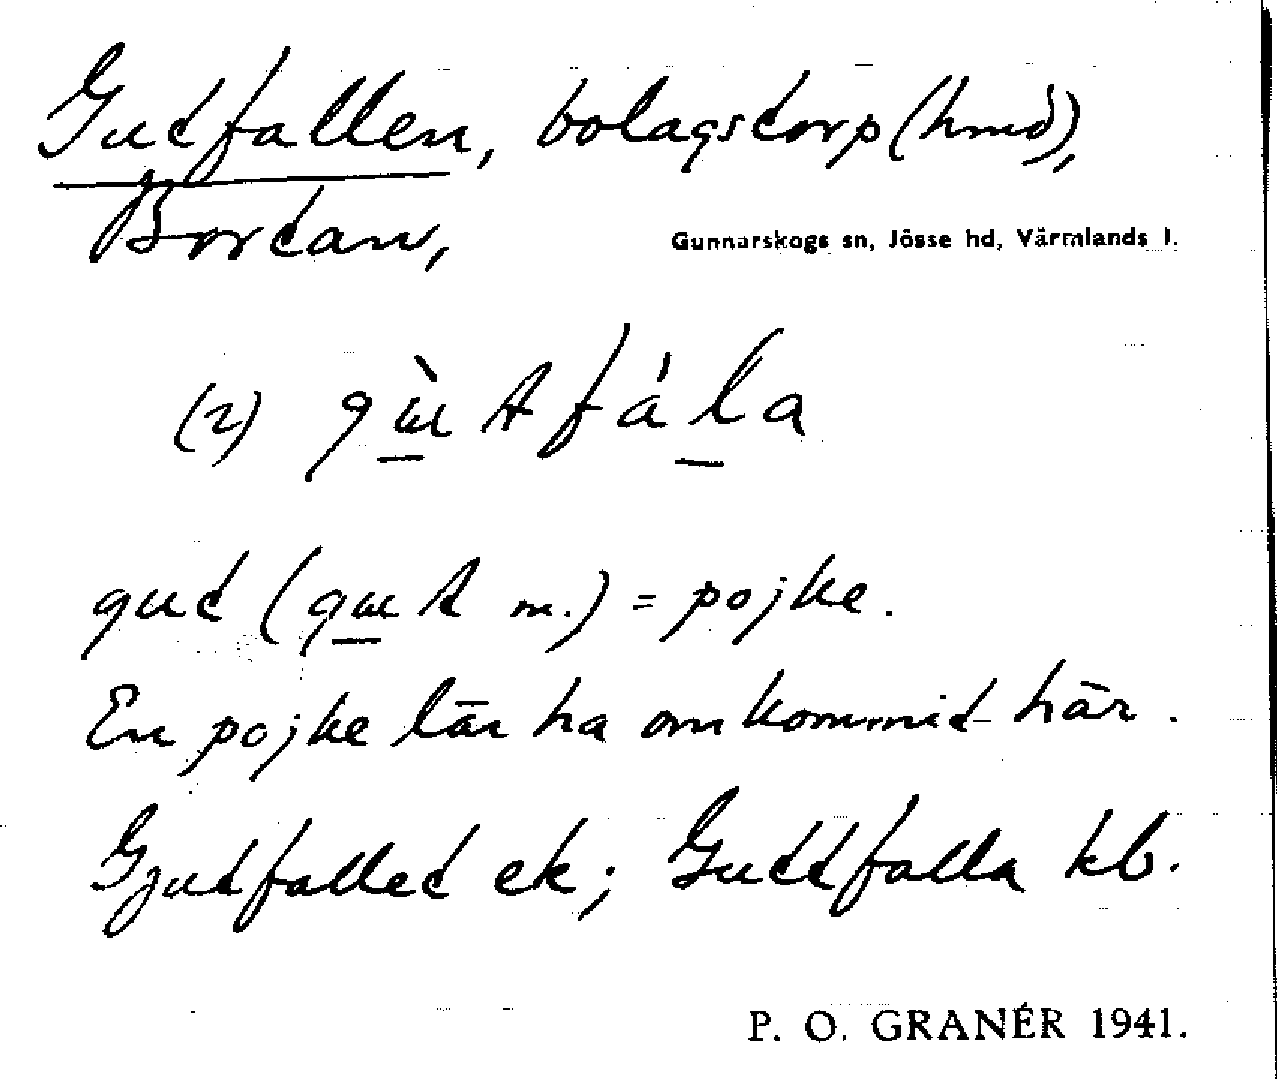 Gudfallen, bolagstorp (hmd),
Bortan,
Gunnarskogs sn, Jösse hd, Värmlands l.
(2)
gud ( m.) = pojke.
En pojke lär ha omkommit här.
Gjudfalled ek; Guddfalla kb.
P. O. GRANÉR 1941.